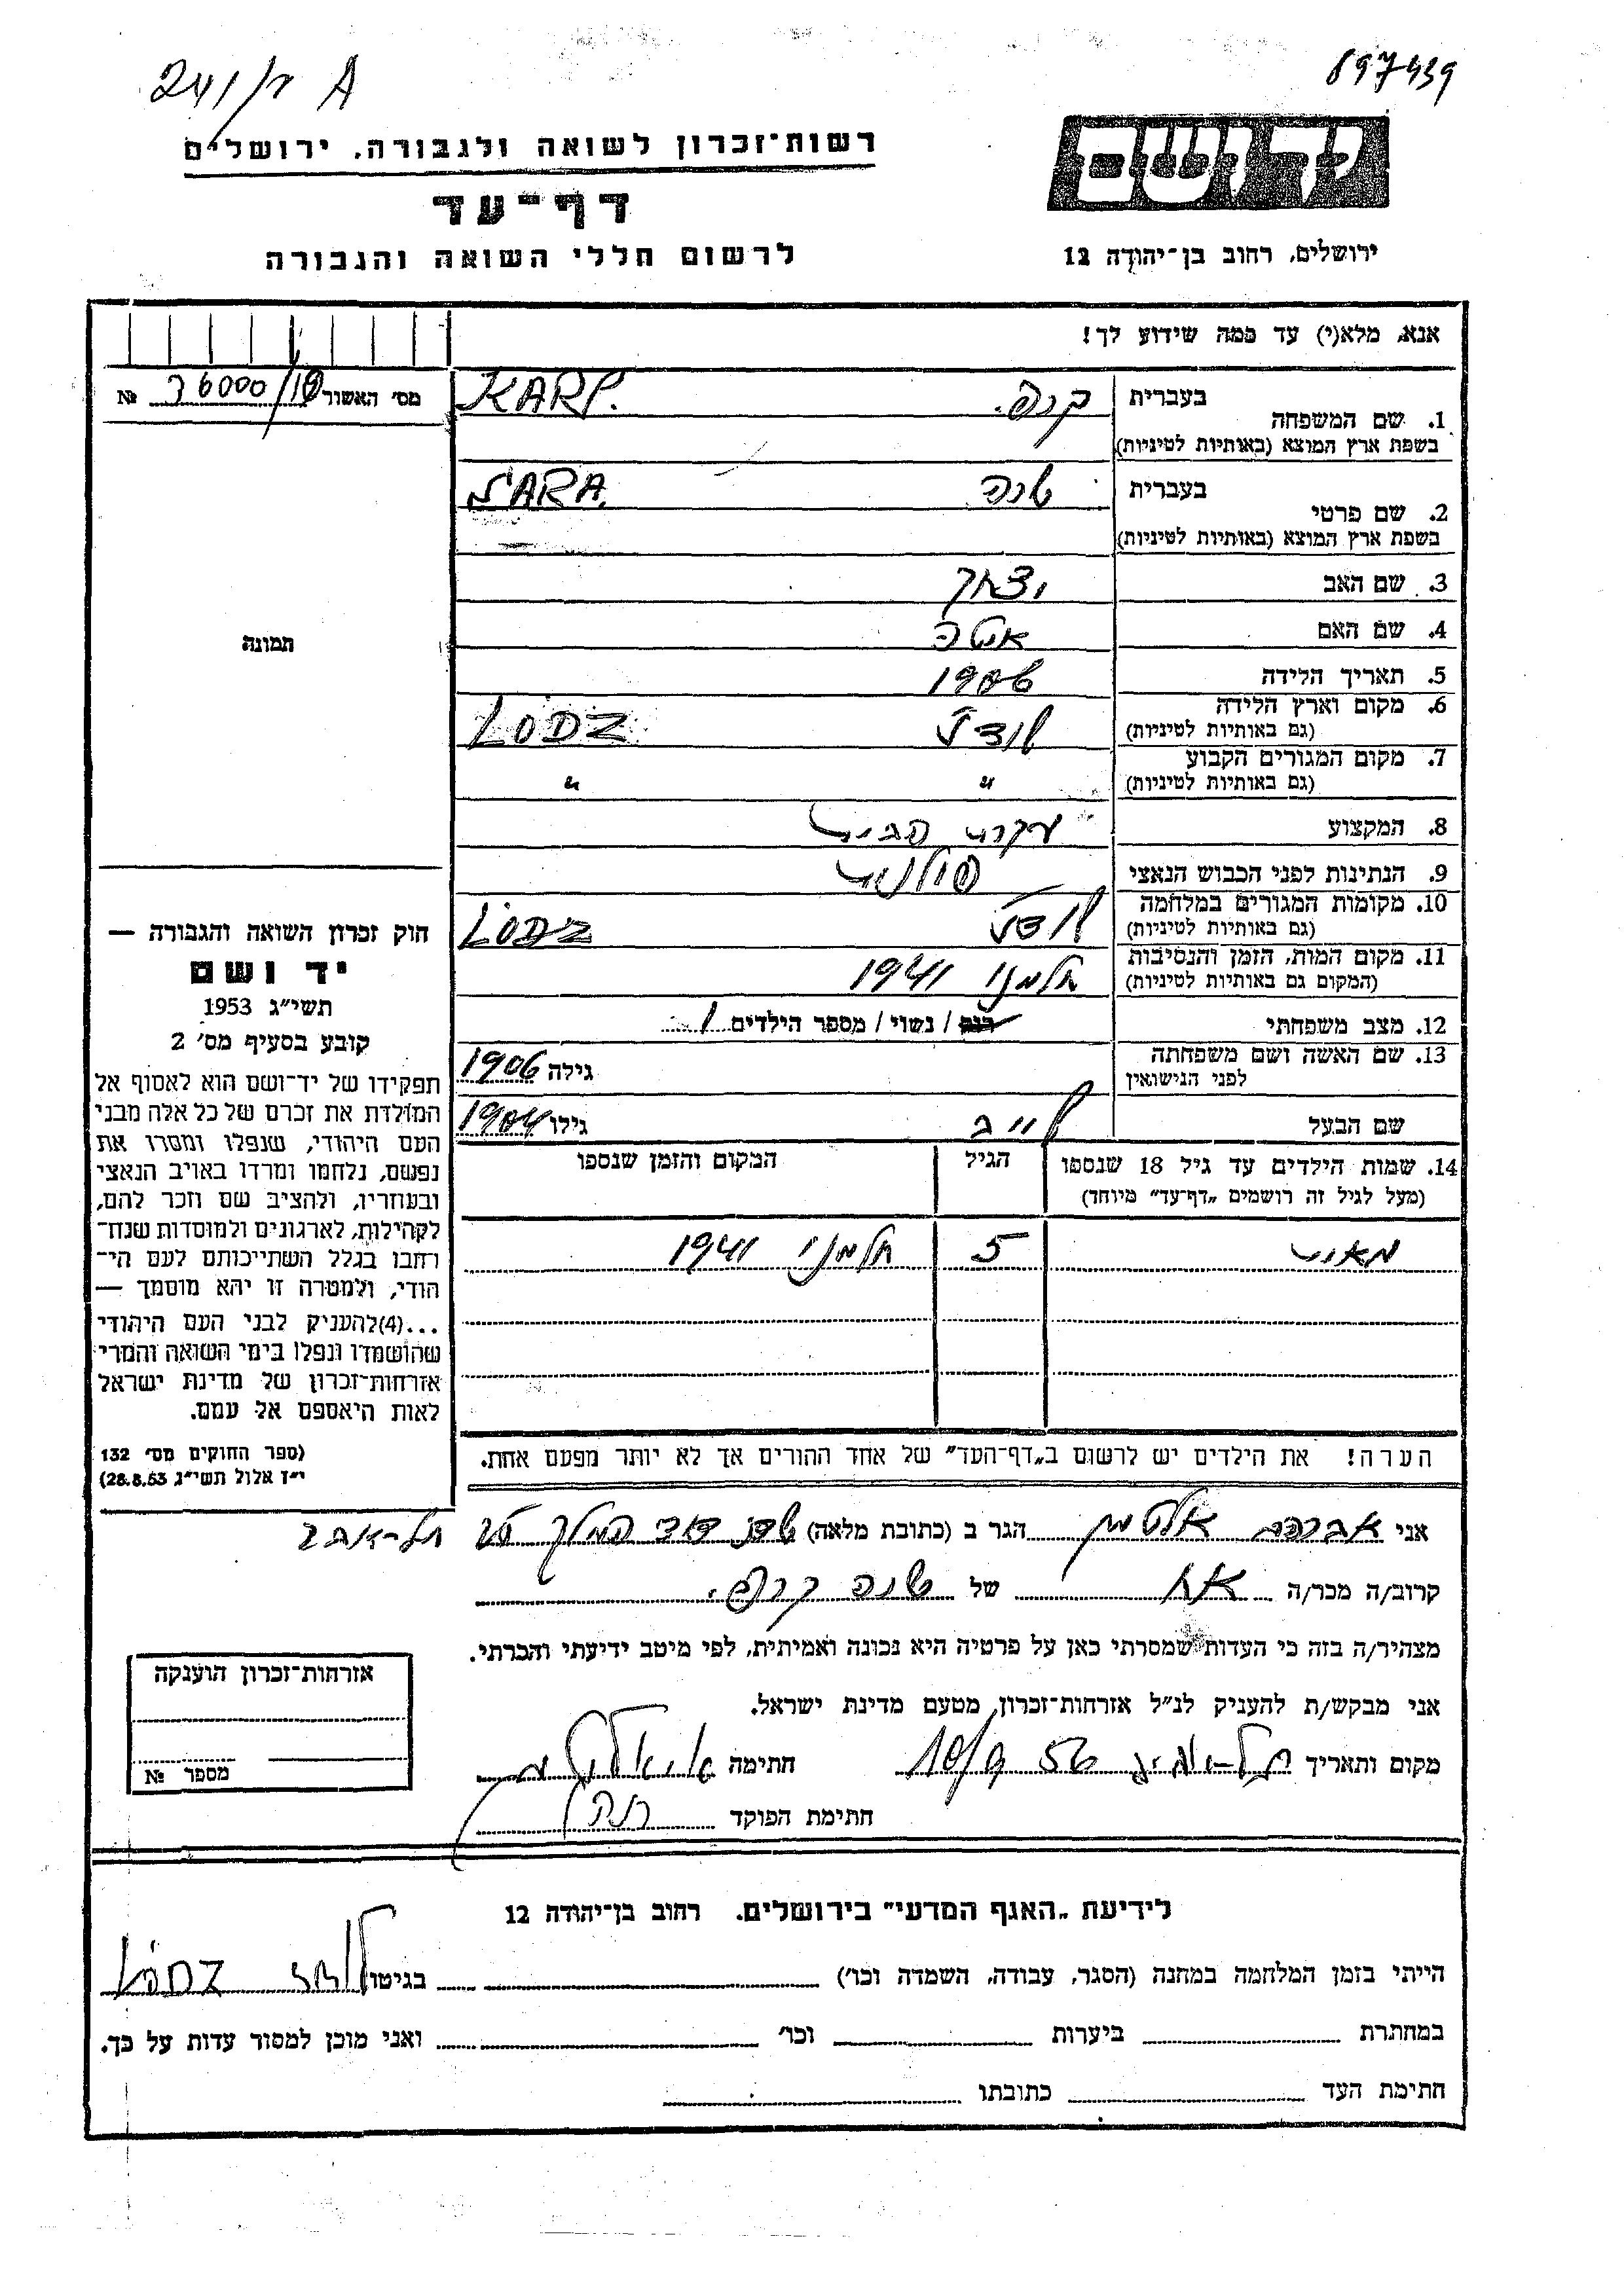 241/ק A
897439
רשות־זכרון לשואה ולגבורה, ירושלים
ידושם
דף־עד
ירושלים, רחוב בן־יהודה 12
לרשום חללי השואה והגבורה
אנא, מלא(י) עד כמה שידוע לך!
מס׳ האשור 36000/18 №
1. שם המשפחה
בעברית קרפ. KARP.
בשפת ארץ המוצא (באותיות לטיניות)
2. שם פרטי
בעברית שרה SARA.
בשפת ארץ המוצא (באותיות לטיניות)
3. שם האב יצחק
4. שם האם
5. תאריך הלידה 1906
6. מקום וארץ הלידה לודז׳ LODZ
(גם באותיות לטיניות)
7. מקום המגורים הקבוע " "
(גם באותיות לטיניות)
8. המקצוע עקרת הבית
9. הנתינות לפני הכבוש הנאצי פולנית
10. מקומות המגורים במלחמה לודז׳ LÓDZ
(גם באותיות לטיניות)
11. מקום המות, הזמן והנסיבות חלמנו 1941
(המקום גם באותיות לטיניות)
12. מצב משפחתי רוק / נשוי / מספר הילדים 1
13. שם האשה ושם משפחתה גילה 1906
לפני הנישואין
שם הבעל לייב גילו 1904
14. שמות הילדים עד גיל 18 שנספו
(מעל לגיל זה רושמים „דף־עד״ מיוחד)
הגיל
המקום והזמן שנספו
5 חלמנו 1941
תמונה
חוק זכרון השואה והגבורה —
יד ושם
תשי״ג 1953
קובע בסעיף מס׳ 2
תפקידו של יד־ושם הוא לאסוף אל
המולדת את זכרם של כל אלה מבני
העם היהודי, שנפלו ומסרו את
נפשם, נלחמו ומרדו באויב הנאצי
ובעוזריו, ולהציב שם וזכר להם,
לקהילות, לארגונים ולמוסדות שנח־
רחבו בגלל השתייכותם לעם הי־
הודי, ולמטרה זו יהא מוסמך —
...(4)להעניק לבני העם היהודי
שהושמדו ונפלו בימי השואה והמרי
אזרחות־זכרון של מדינת ישראל
לאות היאספם אל עמם.
(ספר החוקים מס׳ 132
י״ז אלול תשי״ג 28.8.53)
הערה! את הילדים יש לרשום ב„דף־העד״ של אחד ההורים אך לא יותר מפעם אחת.
אני אברהם אלטמן הגר ב (כתובת מלאה) דוד המלך תל־אביב
קרוב/ה מכר/ה אח של שרה קרפ.
מצהיר/ה בזה כי העדות שמסרתי כאן על פרטיה היא נכונה ואמיתית, לפי מיטב ידיעתי והכרתי.
אני מבקש/ת להעניק לנ״ל אזרחות־זכרון, מטעם מדינת ישראל.
מקום ותאריך תל־אביב 10/9 56 חתימה
חתימת הפוקד
אזרחות־זכרון הוענקה
מספר №
לידיעת „האגף המדעי״ בירושלים, רחוב בן־יהודה 12
הייתי בזמן המלחמה במחנה (הסגר, עבודה, השמדה וכו׳) בגיטו לודז׳ LÓDZ
במחתרת ביערות וכו׳ ואני מוכן למסור עדות על כך.
חתימת העד כתובתו